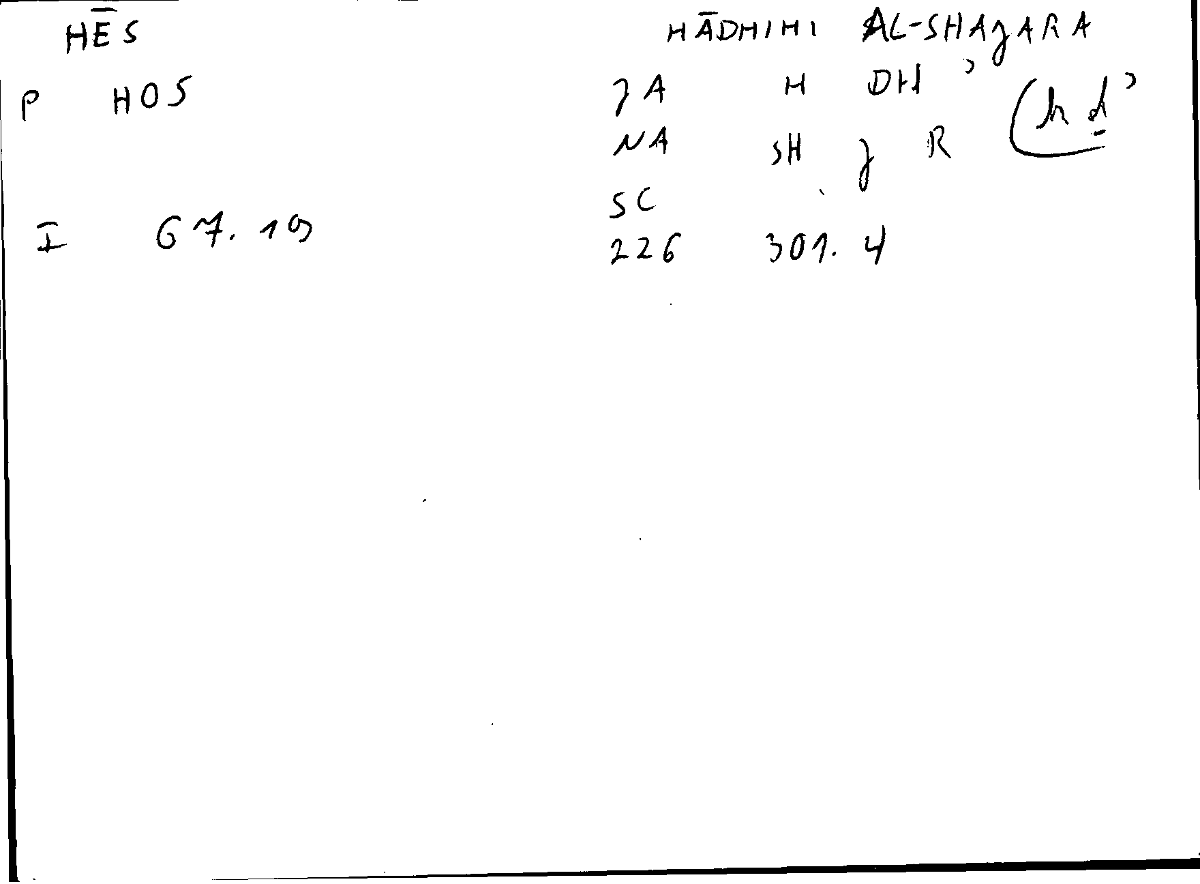 HĒS HĀDHIHI AL-SHAJARA
P HOS JA H DH ʾ (h ḏ ʾ
NA SH J R
SC
I 67.19 226 301.4